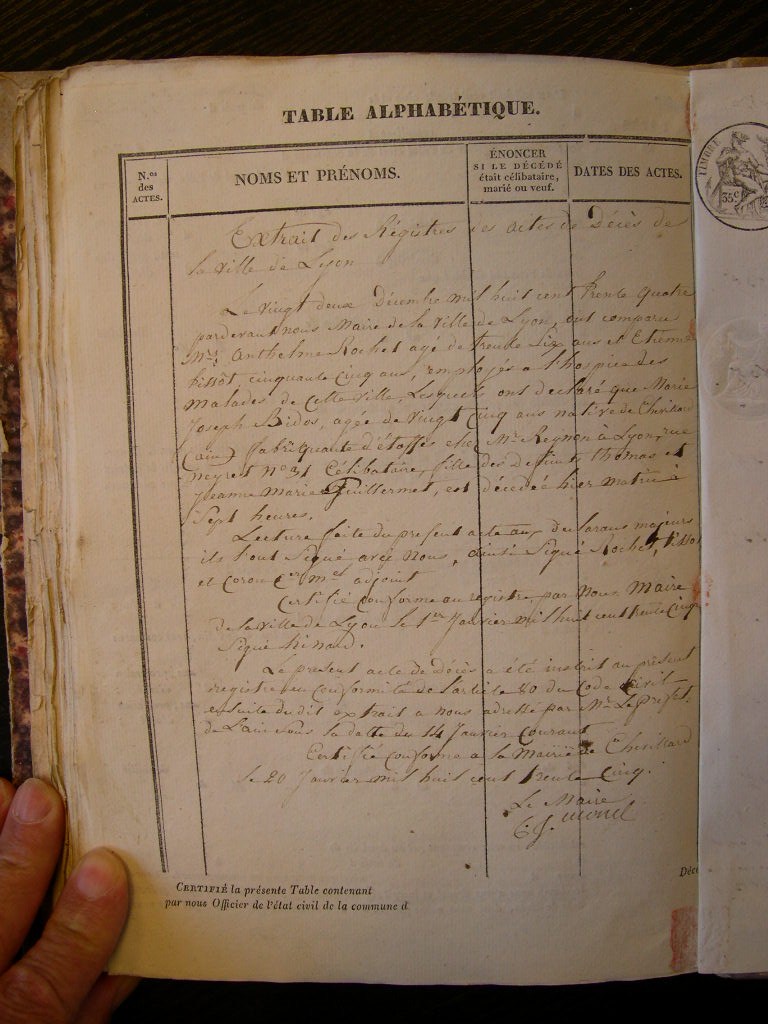 TABLE ALPHABÉTIQUE.
N.os des ACTES.
NOMS ET PRÉNOMS.
ÉNONCER SI LE DÉCÉDÉ était célibataire, marié ou veuf.
DATES DES ACTES.
TIMBRE
35 c
Extrait des Régistres des actes de Décès de
la ville de Lyon
Le vingt deux Décembre mil huit cent trente quatre
pardevant nous Maire de la ville de Lyon, ont comparu
Mrs Anthelme Rochet agé de trente six ans et Etienne
Tissot, cinquante cinq ans, employés a l'hospice des
malades de cette ville, Lesquels ont déclaré que Marie
Joseph Bidos, agée de vingt cinq ans native de Chevillard
(ain) fabriquante d'étoffes chez Mr Reynon à Lyon, rue
neyret no 31 Célibataire, fille des defunts thomas et
Jeanne Marie Guillermet, est décedée hier matin à
Sept heures.
Lecture faite du présent acte aux declarans majeurs
ils l'ont Signé avec Nous, ainsi Signé Rochet, Tissot
et adjoint
Certifié conforme au registre par nous Maire
de la ville de Lyon le 1er Janvier mil huit cent trente cinq
Signé
Le present acte de décès a été inscrit au présent
registre en conformité de l'article 80 du Code Civil
ensuite dudit extrait a nous adressé par Mr Le préfet
de L'ain sous la datte du 14 Janvier courant
Certifié conforme a la Mairie de Chevillard
le 20 Janvier mil huit cent trente cinq.
Le Maire
CERTIFIÉ la présente Table contenant
par nous Officier de l'état civil de la commune d
Décè